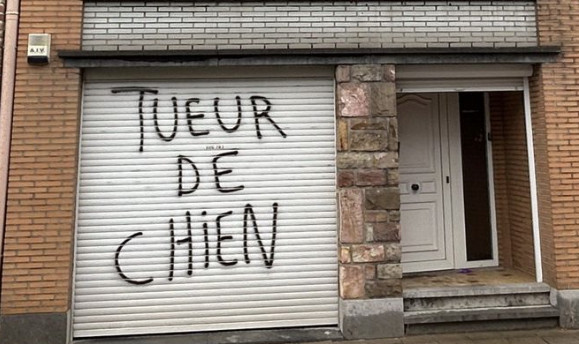 TUEUR
DE
CHIEN